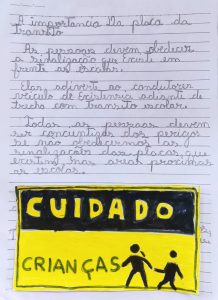 A importancia Da placa da
transito
As pessoas devem obedecer
a sinalização que Existe em
frente as escolar.
Elas, adverte ao condutores
veiculo de Existensia adiante de
trecho com transito escolar.
Todas as pessoas devem
ser concentizdos dos perigos
se não obedecermos as
sinalização das placas, que
existem nas areas proximas
as escolas.
CUIDADO
CRIANÇAS